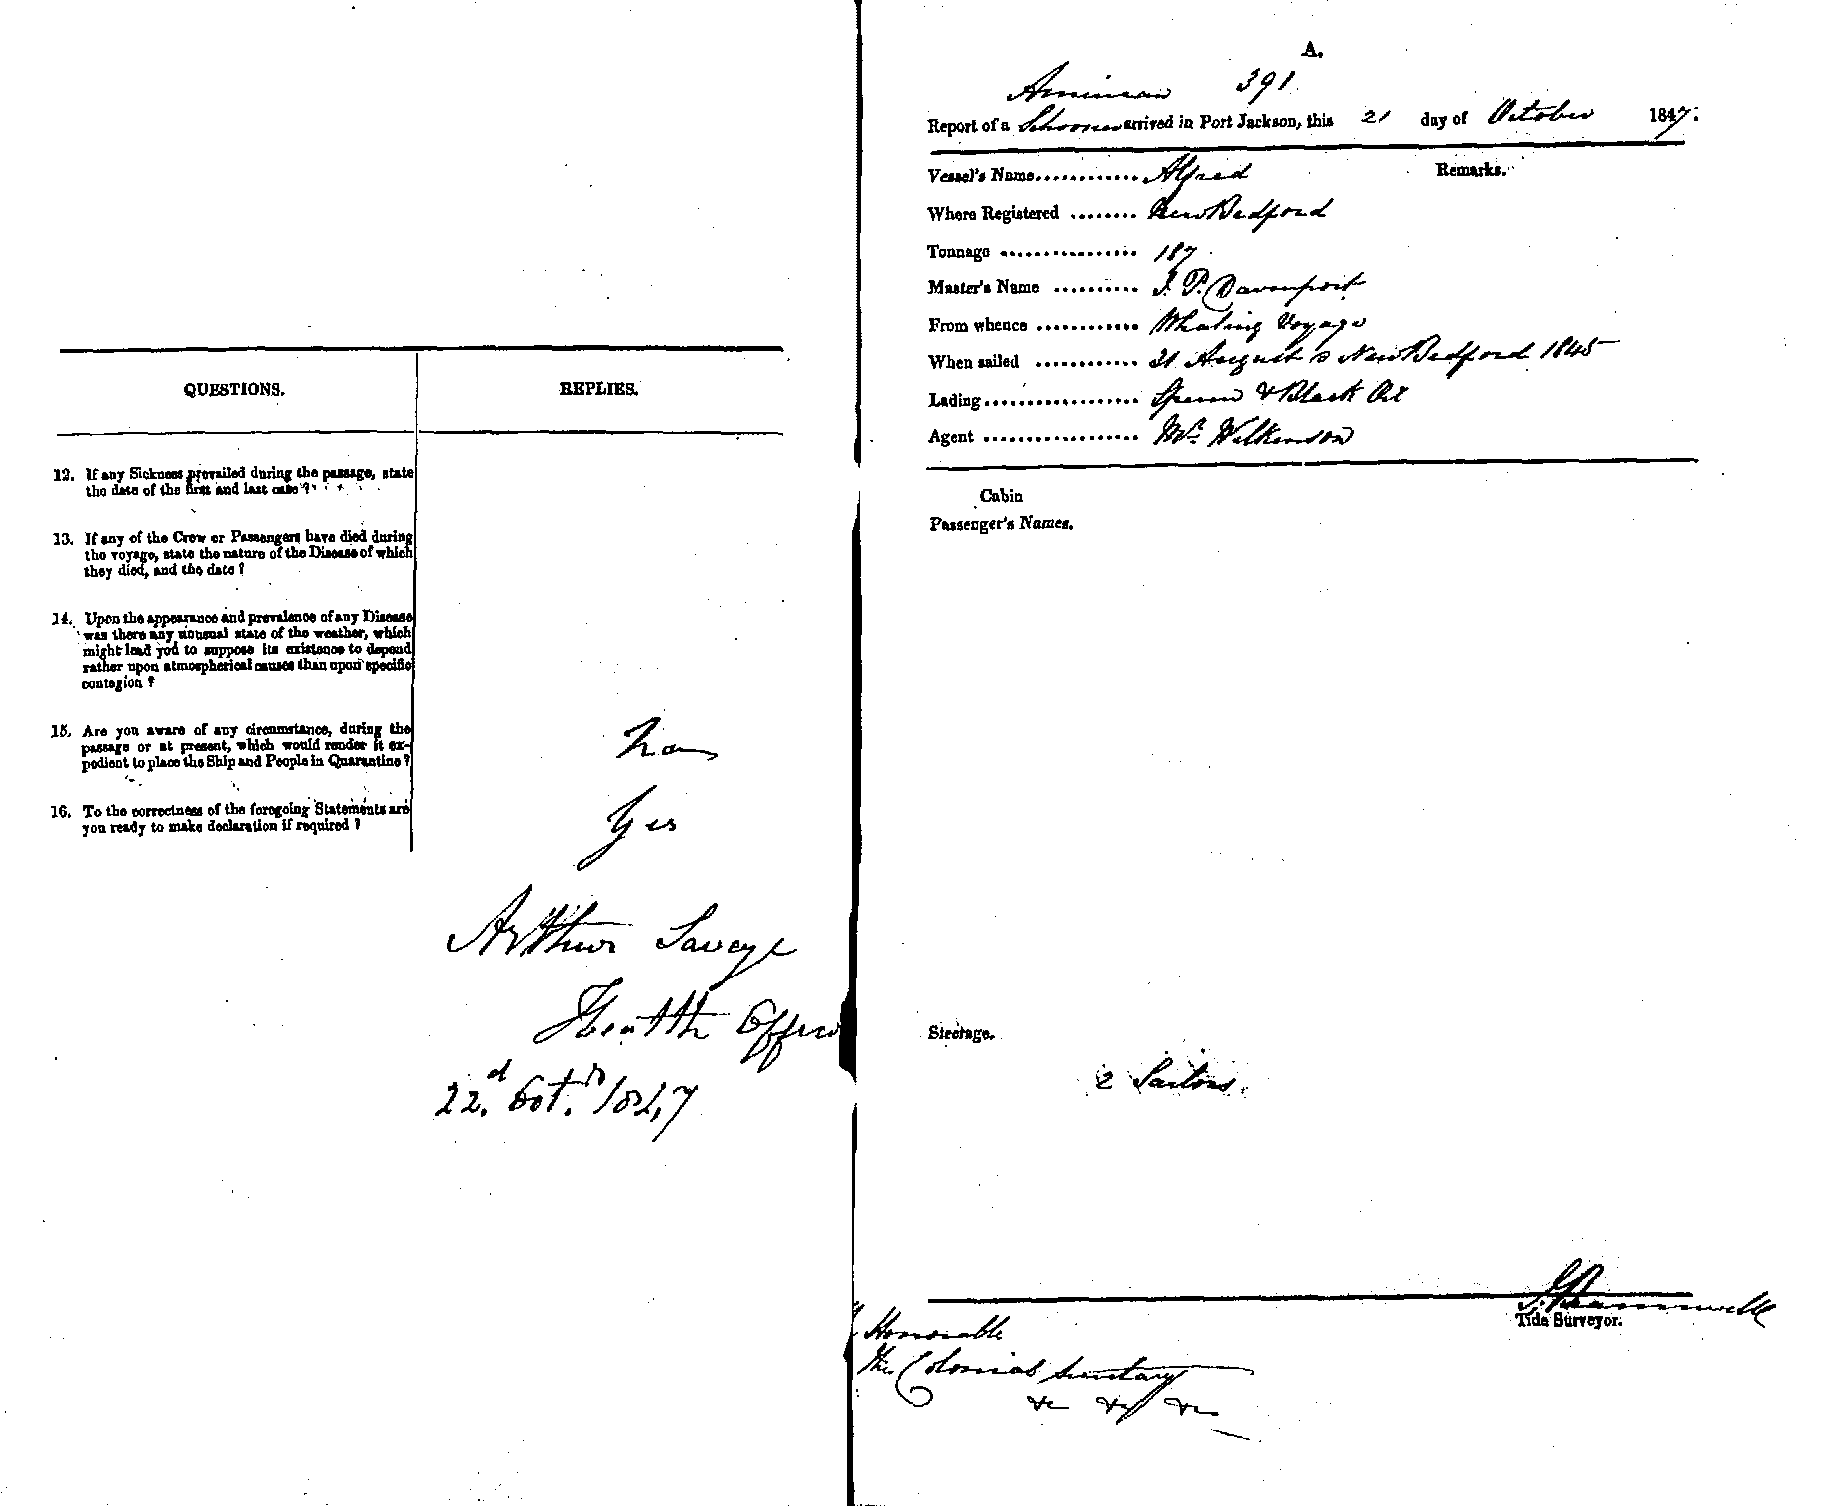 QUESTIONS. REPLIES.
12. If any Sickness prevailed during the passage, state
the date of the first and last case ?
13. If any of the Crew or Passengers have died during
the voyage, state the nature of the Disease of which
they died, and the date ?
14. Upon the appearance and prevalence of any Disease
was there any unusual state of the weather, which
might lead you to suppose its existence to depend
rather upon atmospherical causes than upon specific
contagion ?
15. Are you aware of any circumstance, during the
passage or at present, which would render it ex-
pedient to place the Ship and People in Quarantine ?
No
16. To the correctness of the foregoing Statements are
you ready to make declaration if required ?
Yes
Arthur Savage
Health Officer
22.d Oct.r 1847
A.
American 391
Report of a Schooner arrived in Port Jackson, this 21 day of October 1847.
Vessel's Name............ Alfred Remarks.
Where Registered ........ New Bedford
Tonnage ................ 187
Master's Name .......... J. P. Davenport
From whence ............ Whaling Voyage
When sailed ............ 21 August New Bedford 1845
Lading.................. Sperm & Black Oil
Agent .................. Mr. Wilkinson
Cabin
Passenger's Names.
Steerage.
2 Sailors.
Tide Surveyor.
Honorable
The Colonial Secretary
&c &c &c